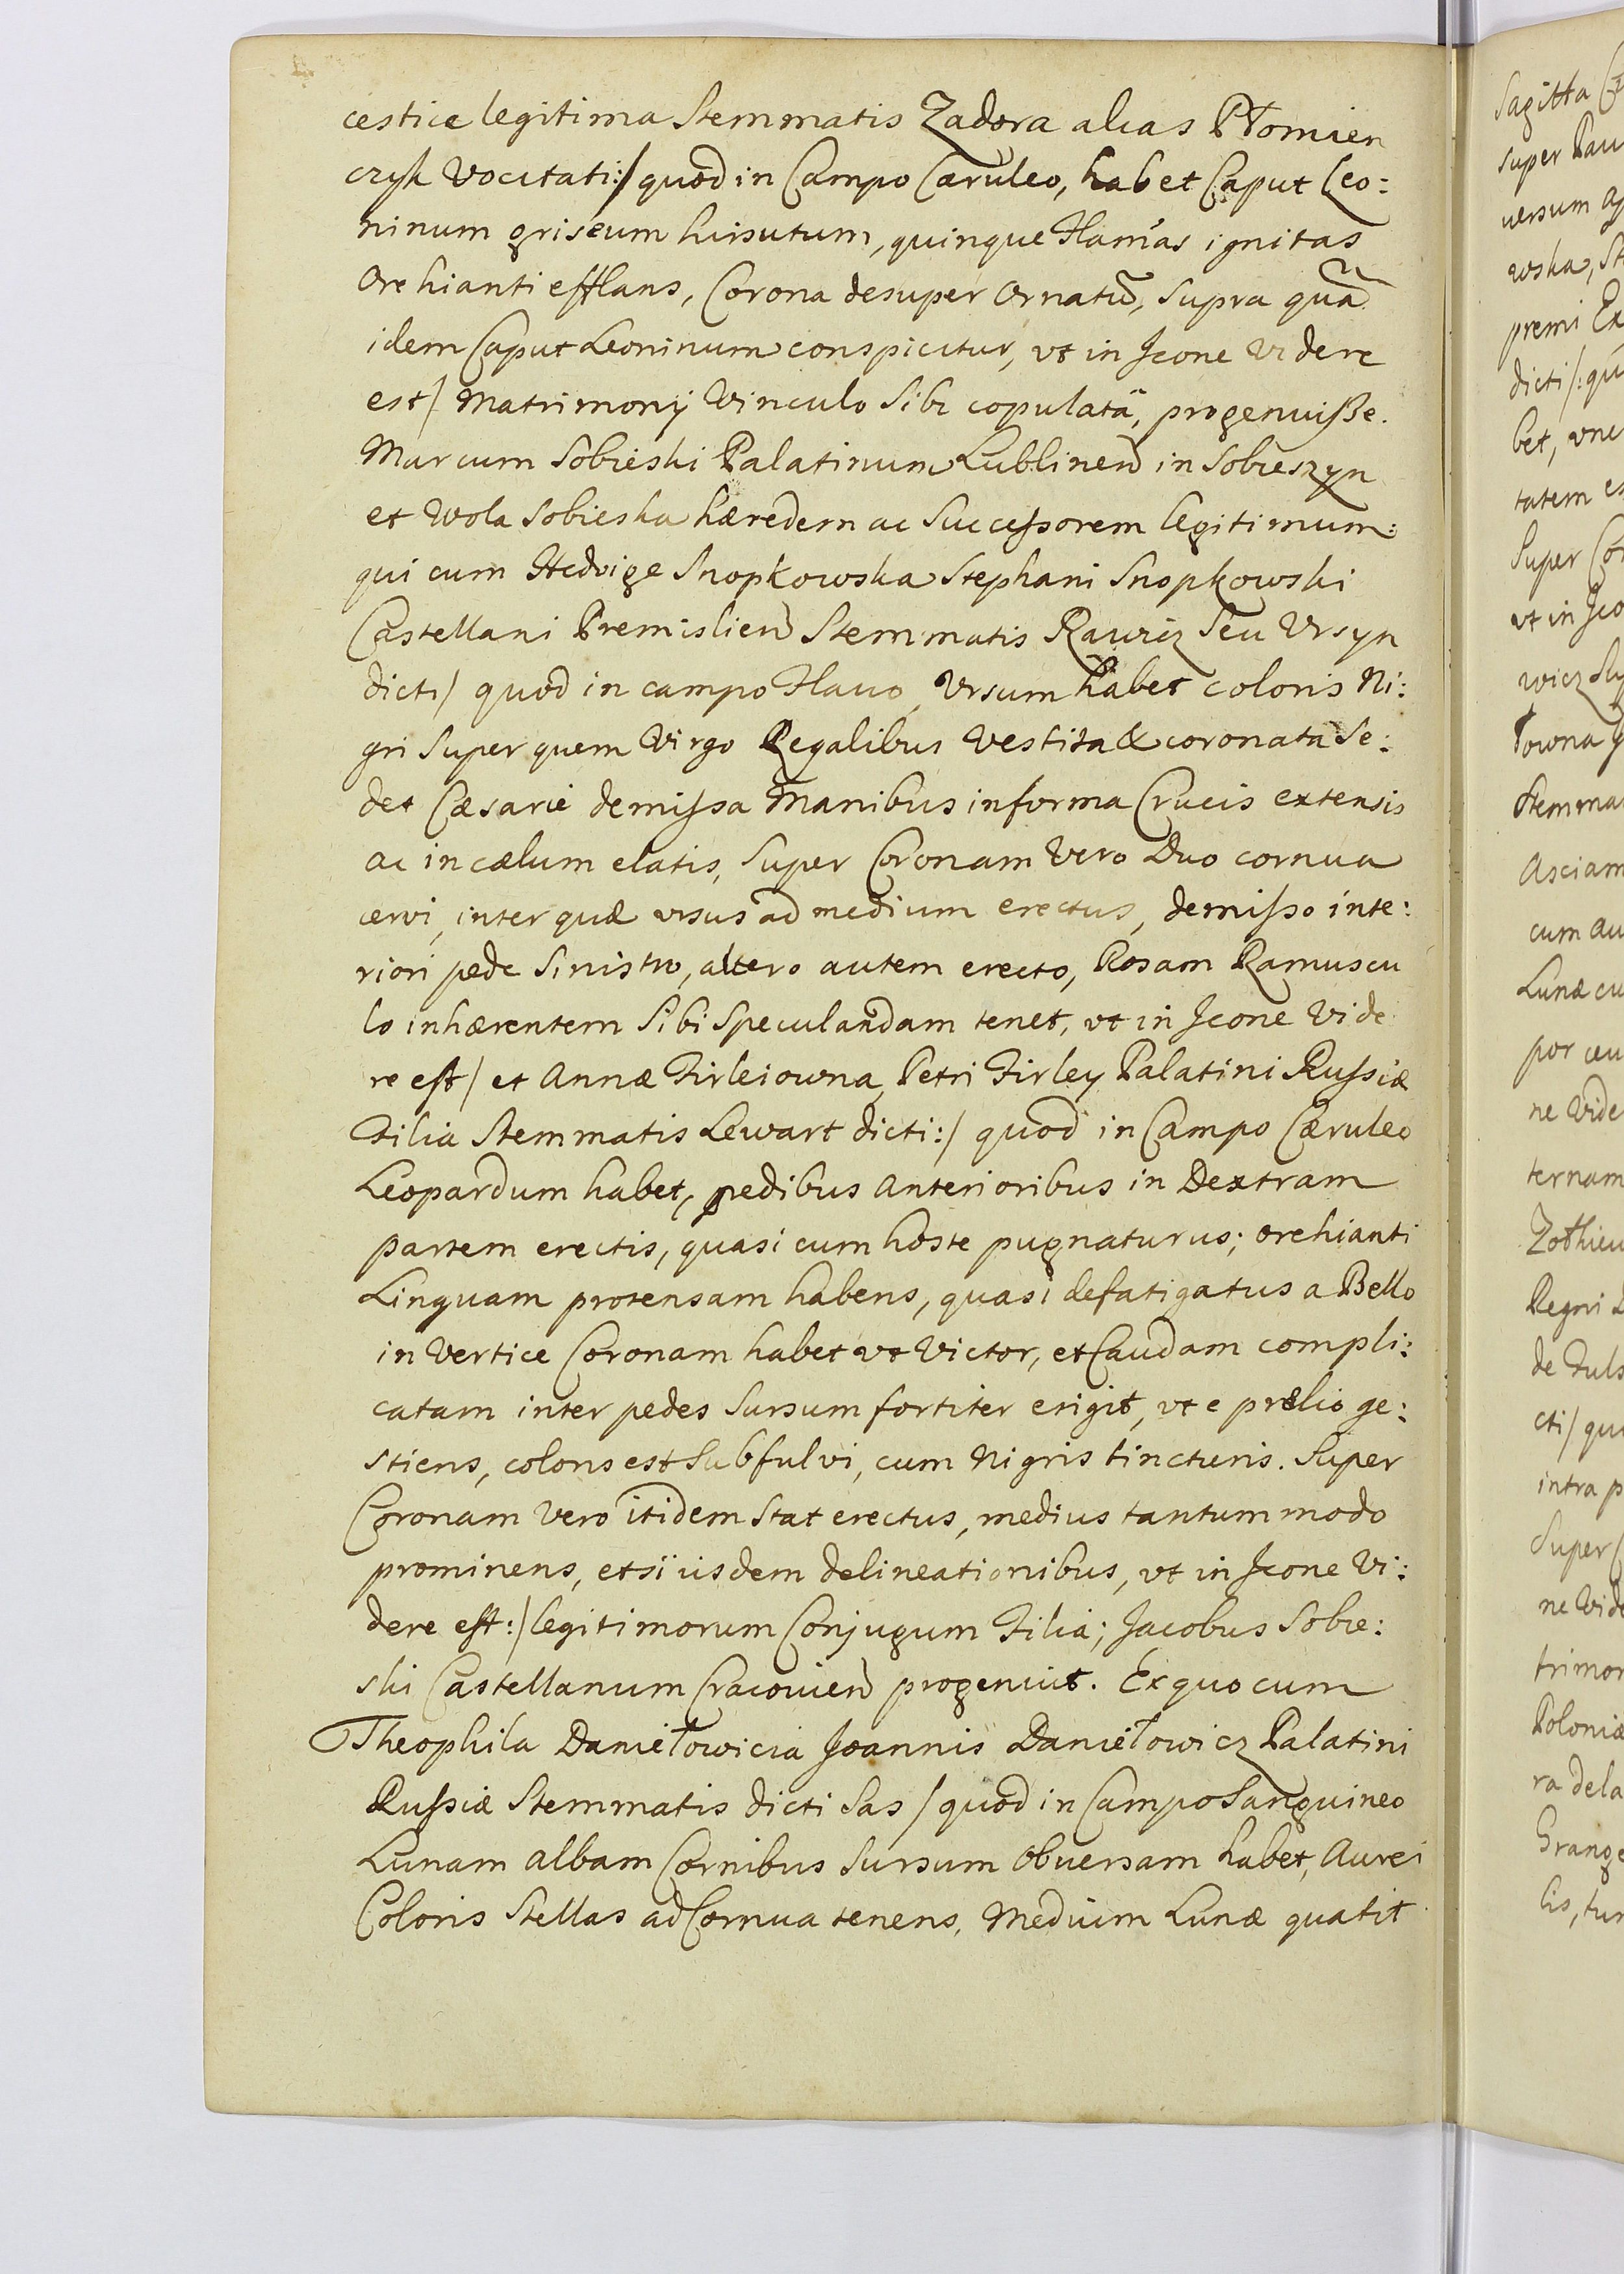 cestice legitima Stemmatis Zadora alias Płomien
czyk Vocitati:/ quod in Campo Caruleo, habet Caput Leo:
ninum griseum hirsutum, quinque Flam̄as ignitas
Ore hianti efflans, Corona desuper Ornatū, Supra quā
idem Caput Leoninum conspicitur, vt in Jcone Videre
est/ Matrimonij Vinculo Sibi copulatā, progenuiße.
Marcum Sobieski Palatinum Lublinen in Sobieszyn
et Wola Sobieska hæredem ac Succeßorem legitimum:
qui cum Hedvige Snopkowska Stephani Snopkowski
Castellani Premislien Stemmatis Rawicz Seu Vrsyn
dicti/ quod in campo Flavo, Vrsum habet coloris Ni:
gri Super quem Virgo Regalibus Vestita & coronata Se:
det Cæsarie demißa Manibus in forma Crucis extensis
ac in cælum elatis, Super Coronam Vero Duo cornua
cervi, inter quæ vrsus ad medium erectus, demißo inte:
riori pede Sinistro, altero autem erecto, Rosam Ramuscu
lo inhærentem Sibi Speculandam tenet, vt in Jcone Vide
re est/ et Annæ Firleiowna, Petri Firley Palatini Rußiæ
Filia Stemmatis Lewart dicti:/ quod in Campo Cæruleo
Leopardum habet, pedibus Anterioribus in Dextram
partem erectis, quasi cum hoste pugnaturus; ore hianti
Linguam protensam habens, quasi defatigatus a Bello
in Vertice Coronam habet vt Victor, et Caudam compli:
catam inter pedes Sursum fortiter erigit, vt e prælio ge:
stiens, coloris est Subfulvi, cum Nigris tincturis. Super
Coronam Vero itidem Stat erectus, medius tantum modo
prominens, etsi iisdem delineationibus, vt in Jcone Vi:
dere est:/ legitimorum Conjugum Filia; Jacobus Sobie:
ski Castellanum Cracovien progenuit. Ex quo cum
Theophila Daniełowicia Joannis Daniełowicz Palatini
Rußiæ Stemmatis dicti Sas / quod in Campo Sanguineo
Lunam albam Cornibus Sursum Obuersam habet, Aurei
Coloris Stellas ad Cornua tenens, Medium Lunæ quatit
Sagitta
super
uersum
wska,
premi
dicti/:
bet,
tatem
Super
vt in
wicz
łowna
Stemma
Asciam
cum
Lunæ
por
ne Vide
ternam
Regni
de
cti/
intra
Super
ne Vide
trimon
Poloniæ
ra